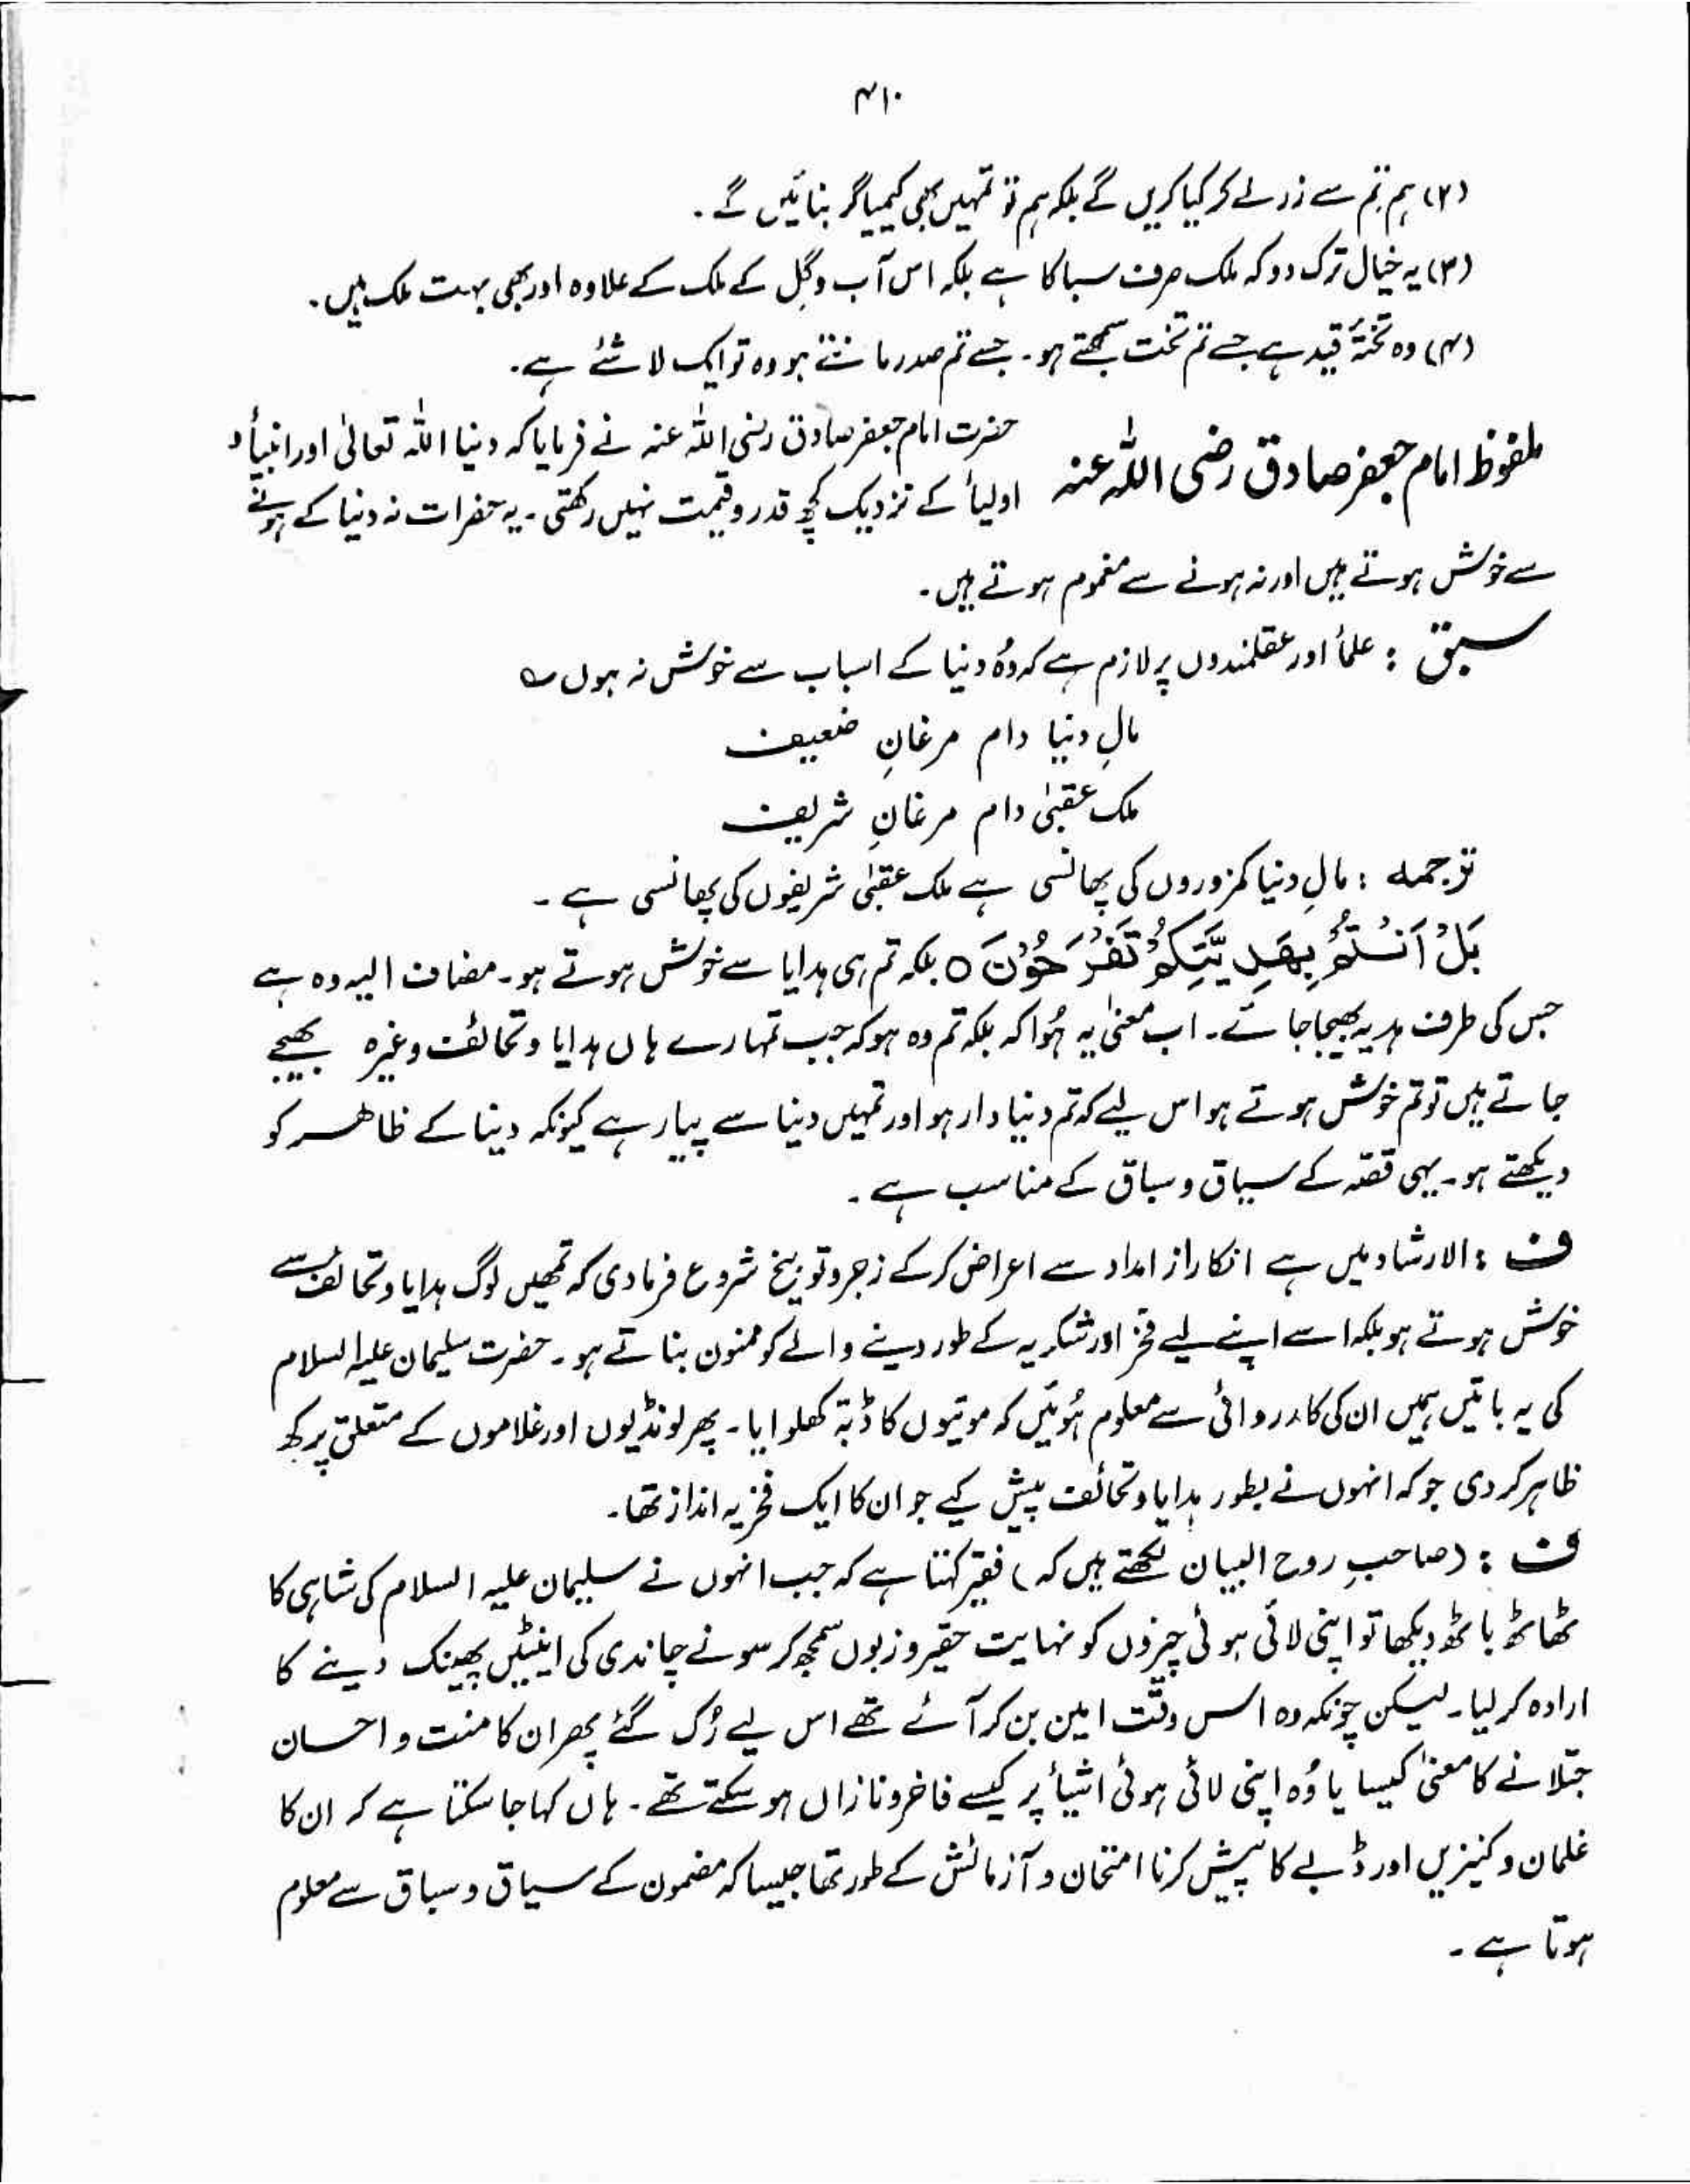 ۴۱۰
(۲) ہم تم سے زر لے کر کیا کریں گے بلکہ ہم تو تمہیں بھی کیمیاگر بنائیں گے ۔
(۳) یہ خیال ترک دو کہ ملک صرف سبا کا ہے بلکہ اس آب و گِل کے ملک کے علاوہ اور بھی بہت ملک ہیں ۔
(۴) وہ تختۂ قید ہے جسے تم تخت سمجھتے ہو ۔ جسے تم صدر مانتے ہو وہ تو ایک لا شئے ہے ۔
ملفوظ امام جعفر صادق رضی اللہ عنہ
حضرت امام جعفر صادق رضی اللہ عنہ نے فرمایا کہ دنیا اللہ تعالیٰ اور انبیأ و
اولیأ کے نزدیک کچھ قدر و قیمت نہیں رکھتی ۔ یہ حضرات نہ دنیا کے ہونے
سے خوش ہوتے ہیں اور نہ ہونے سے مغموم ہوتے ہیں ۔
سبق : علمأ اور عقلمندوں پر لازم ہے کہ وُہ دنیا کے اسباب سے خوش نہ ہوں ؎
مالِ دنیا دام مرغانِ ضعیف
ملک عقبیٰ دام مرغانِ شریف
ترجمہ : مالِ دنیا کمزوروں کی پھانسی ہے ملک عقبیٰ شریفوں کی پھانسی ہے ۔
بَلْ اَنْتُمْ بِھَدِیَّتِکُمْ تَفْرَحُوْنَ ○ بلکہ تم ہی ہدایا سے خوش ہوتے ہو ۔ مضاف الیہ وہ ہے
جس کی طرف ہدیہ بھیجا جائے ۔ اب معنیٰ یہ ہُوا کہ بلکہ تم وہ ہو کہ جب تمہارے ہاں ہدایا و تحائف وغیرہ بھیجے
جاتے ہیں تو تم خوش ہوتے ہو اس لیے کہ تم دنیا دار ہو اور تمہیں دنیا سے پیار ہے کیونکہ دینا کے ظاہر کو
دیکھتے ہو ۔ یہی قصّہ کے سیاق و سباق کے مناسب ہے ۔
ف : الارشاد میں ہے انکار از امداد سے اعراض کر کے زجر و توبیخ شروع فرما دی کہ تمھیں لوگ ہدایا و تحائف سے
خوش ہوتے ہو بلکہ اسے اپنے لیے فخر اور شکریہ کے طور دینے والے کو ممنون بناتے ہو ۔ حضرت سلیمان علیہ السلام
کی یہ باتیں ہمیں ان کی کارروائی سے معلوم ہُوئیں کہ موتیوں کا ڈبّہ کھلوایا ۔ پھر لونڈیوں اور غلاموں کے متعلق پرکھ
ظاہر کر دی جو کہ انہوں نے بطور ہدایا و تحائف پیش کیے جو ان کا ایک فخریہ انداز تھا ۔
ف : (صاحبِ روح البیان لکھتے ہیں کہ) فقیر کہتا ہے کہ جب انہوں نے سلیمان علیہ السلام کی شاہی کا
ٹھاٹھ باٹھ دیکھا تو اپنی لائی ہوئی چیزوں کو نہایت حقیر و زبوں سمجھ کر سونے چاندی کی اینٹیں پھینک دینے کا
ارادہ کر لیا ۔ لیکن چونکہ وہ اس وقت امین بن کر آئے تھے اس لیے رُک گئے پھر ان کا منت و احسان
جتلانے کا معنیٰ کیسا یا وُہ اپنی لائی ہوئی اشیأ پر کیسے فاخر و نازاں ہو سکتے تھے ۔ ہاں کہا جا سکتا ہے کہ ان کا
غلمان و کنیزیں اور ڈبے کا پیش کرنا امتحان و آزمائش کے طور تھا جیسا کہ مضمون کے سیاق و سباق سے معلوم
ہوتا ہے ۔